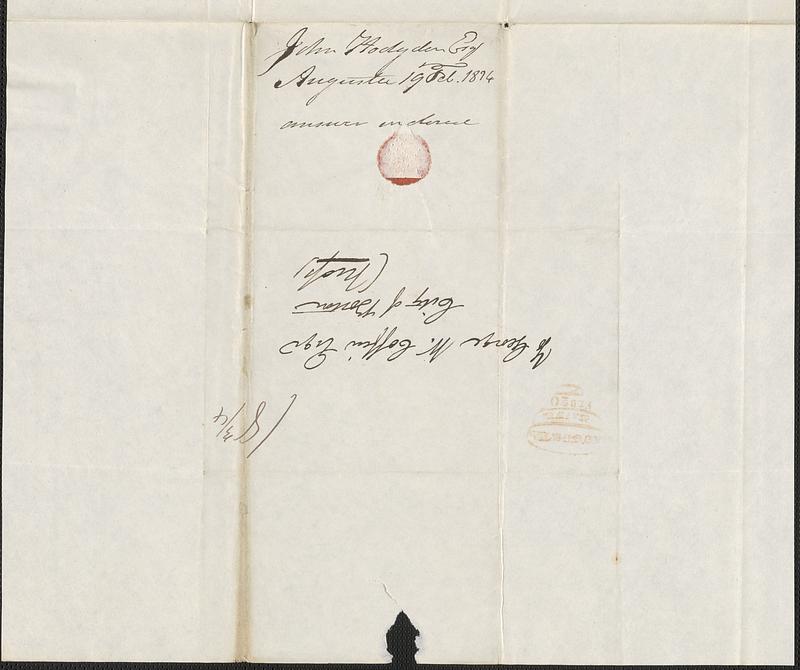 John Hodgdon Esq
Augusta 19 Feb. 1834
answer inclosed
To George W. Coffin Esqr
City of Boston
(Mass)
18 3/4
AUGUSTA
FEB 20